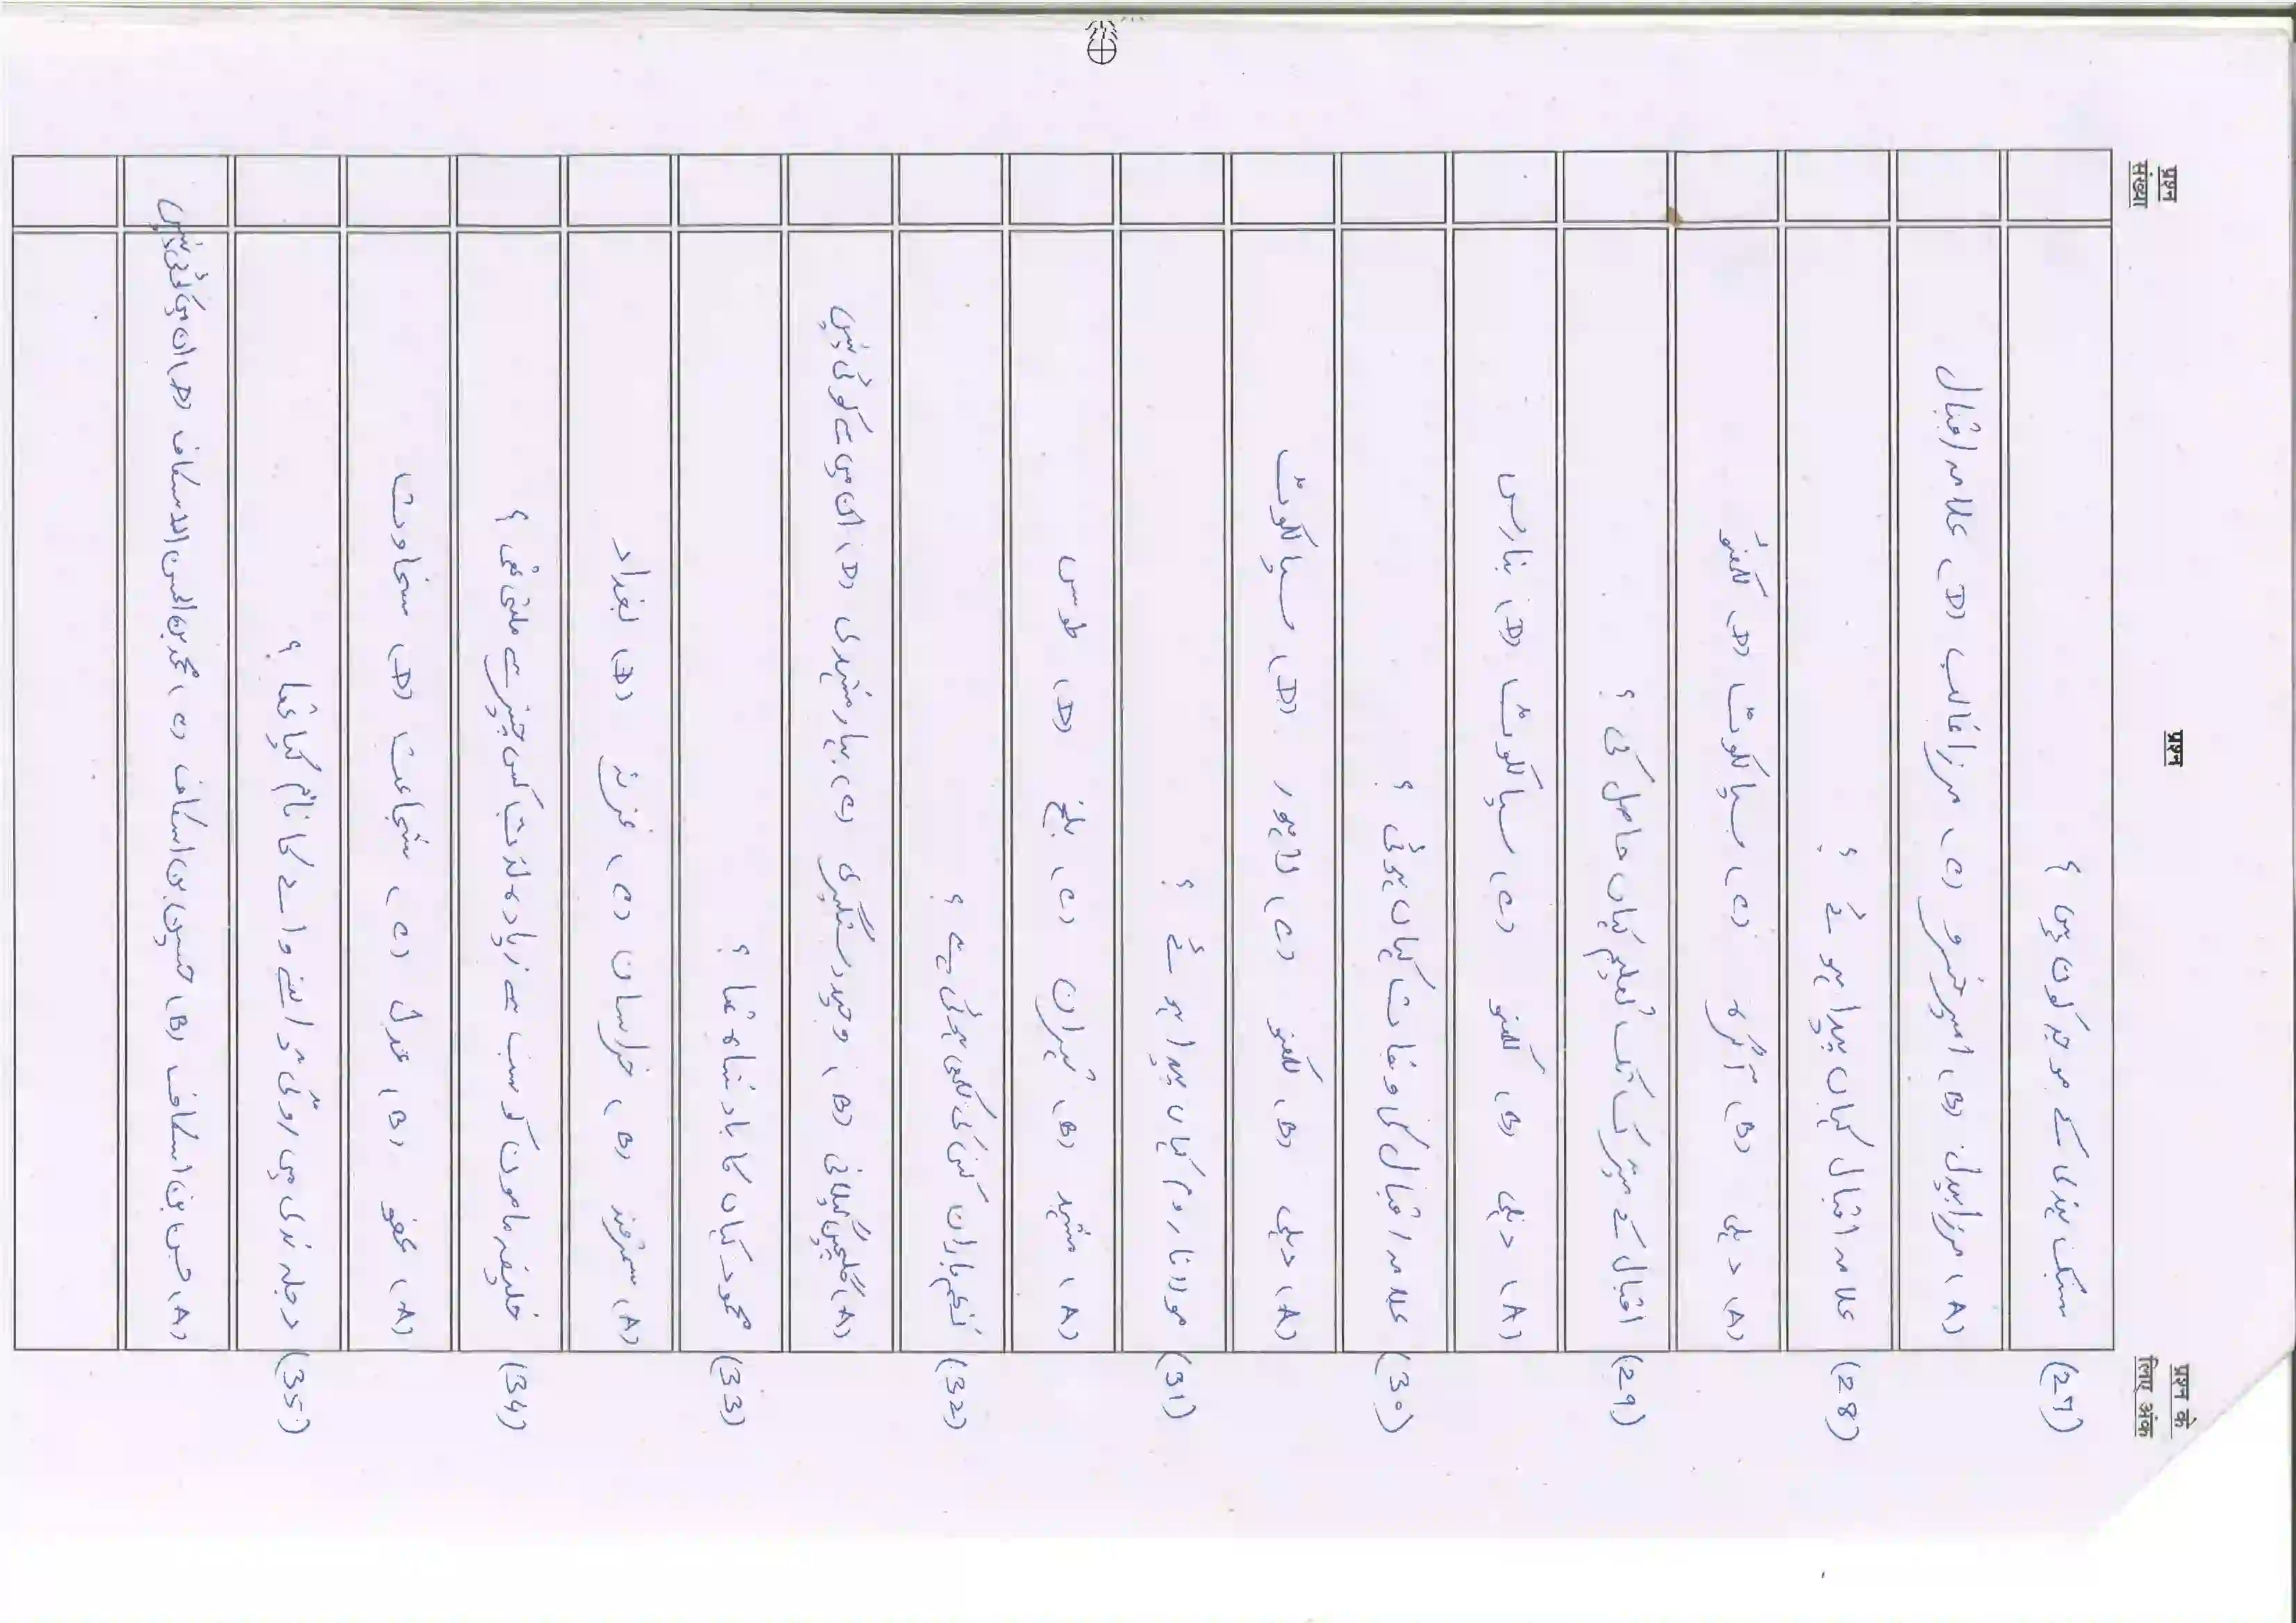 प्रश्न संख्या
प्रश्न
प्रश्न के लिए अंक
(27) سبک ہندی کے موجد کون ہیں ؟
(A) مرزا بیدل (B) امیر خسرو (C) مرزا غالب (D) علامہ اقبال
(28) علامہ اقبال کہاں پیدا ہوئے ؟
(A) دہلی (B) آگرہ (C) سیالکوٹ (D) لکھنؤ
(29) اقبال کے میٹرک تک تعلیم کہاں حاصل کی ؟
(A) دہلی (B) لکھنو (C) سیالکوٹ (D) بنارس
(30) علامہ اقبال کی وفات کہاں ہوئی ؟
(A) دہلی (B) لکھنو (C) لاہور (D) سیالکوٹ
(31) مولانا روم کہاں پیدا ہوئے ؟
(A) مشہد (B) تہران (C) بلخ (D) طوس
(32) نظم باران کس کی لکھی ہوئی ہے ؟
(A) گلچیں گیلانی (B) وحید دستگیری (C) بہار مشہدی (D) ان میں سے کوئی نہیں
(33) محمود کہاں کا بادشاہ تھا ؟
(A) سمرقند (B) خراسان (C) غزنہ (D) بغداد
(34) خلیفہ مامون کو سب سے زیادہ لذت کس چیز سے ملتی تھی ؟
(A) عفو (B) عدل (C) شجاعت (D) سخاوت
(35) دجلہ ندی میں روٹی ڈالنے والے کا نام کیا تھا ؟
(A) حسن بن اسکاف (B) حسین بن اسکاف (C) محمد بن الحسن الاسکاف (D) ان میں کوئی نہیں